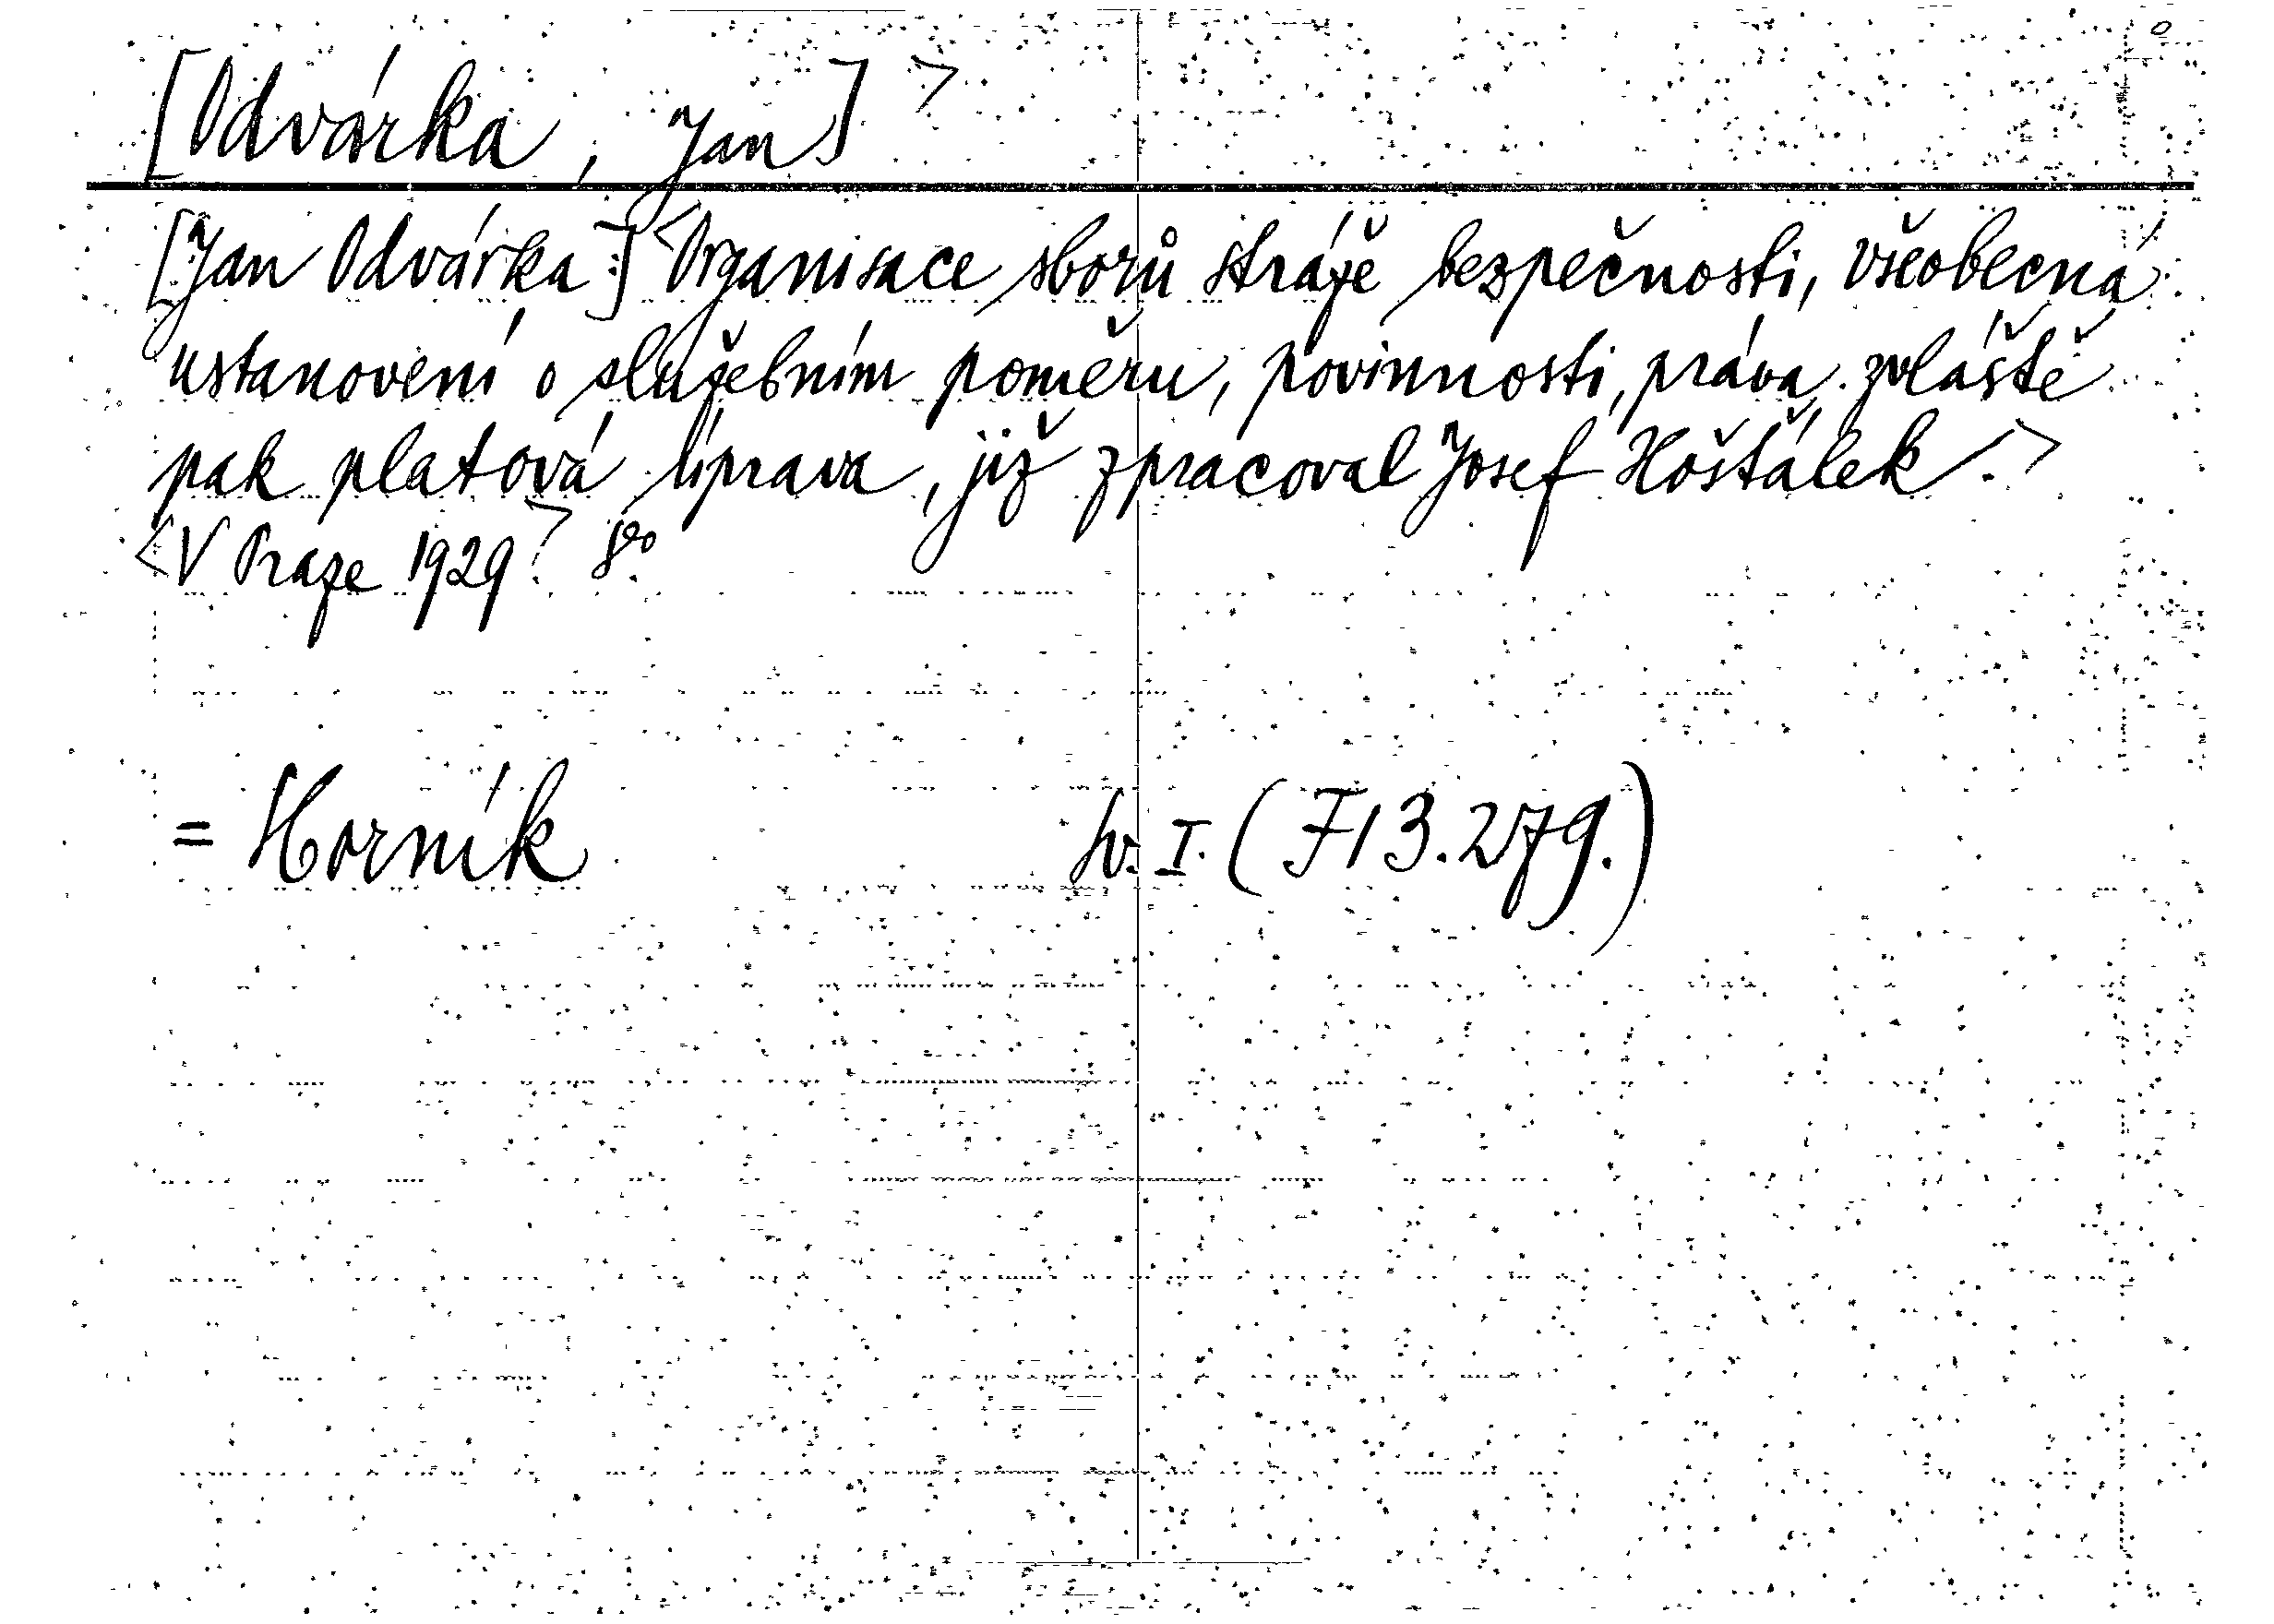 [Odvárka, Jan] >
[Jan Odvárka:] <Organisace sborů stráže bezpečnosti, všeobecná
ustanovení o služebním poměru, povinnosti, práva, zvláště
pak platová úprava, již zpracoval Josef Hošťálek.>
<V Praze 1929.> 8°.
= Horník sv. I. (F13.279.)